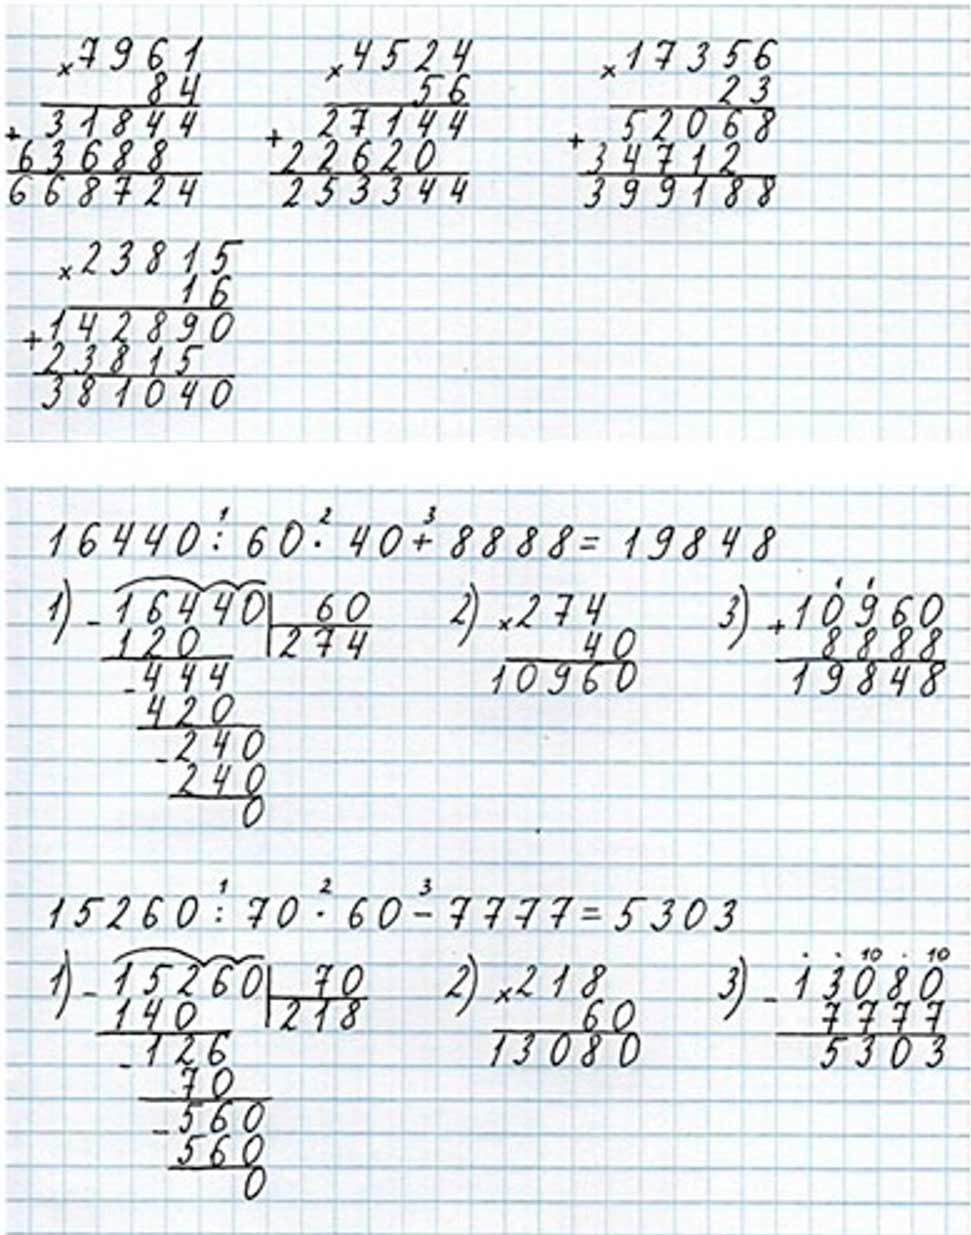 ×7961 ×4524 ×17356
84 56 23
+31844 +27144 +52068
63688 22620 34712
668724 253344 399188
×23815
16
+142890
23815
381040
1 2 3
16440:60·40+8888=19848
1) -16440 60 2) ×274 3) +10960
120 274 40 8888
-444 10960 19848
420
-240
240
0
1 2 3
15260:70·60-7777=5303
10 10
1) -15260 70 2) ×218 3) -13080
140 218 60 7777
-126 13080 5303
70
-560
560
0